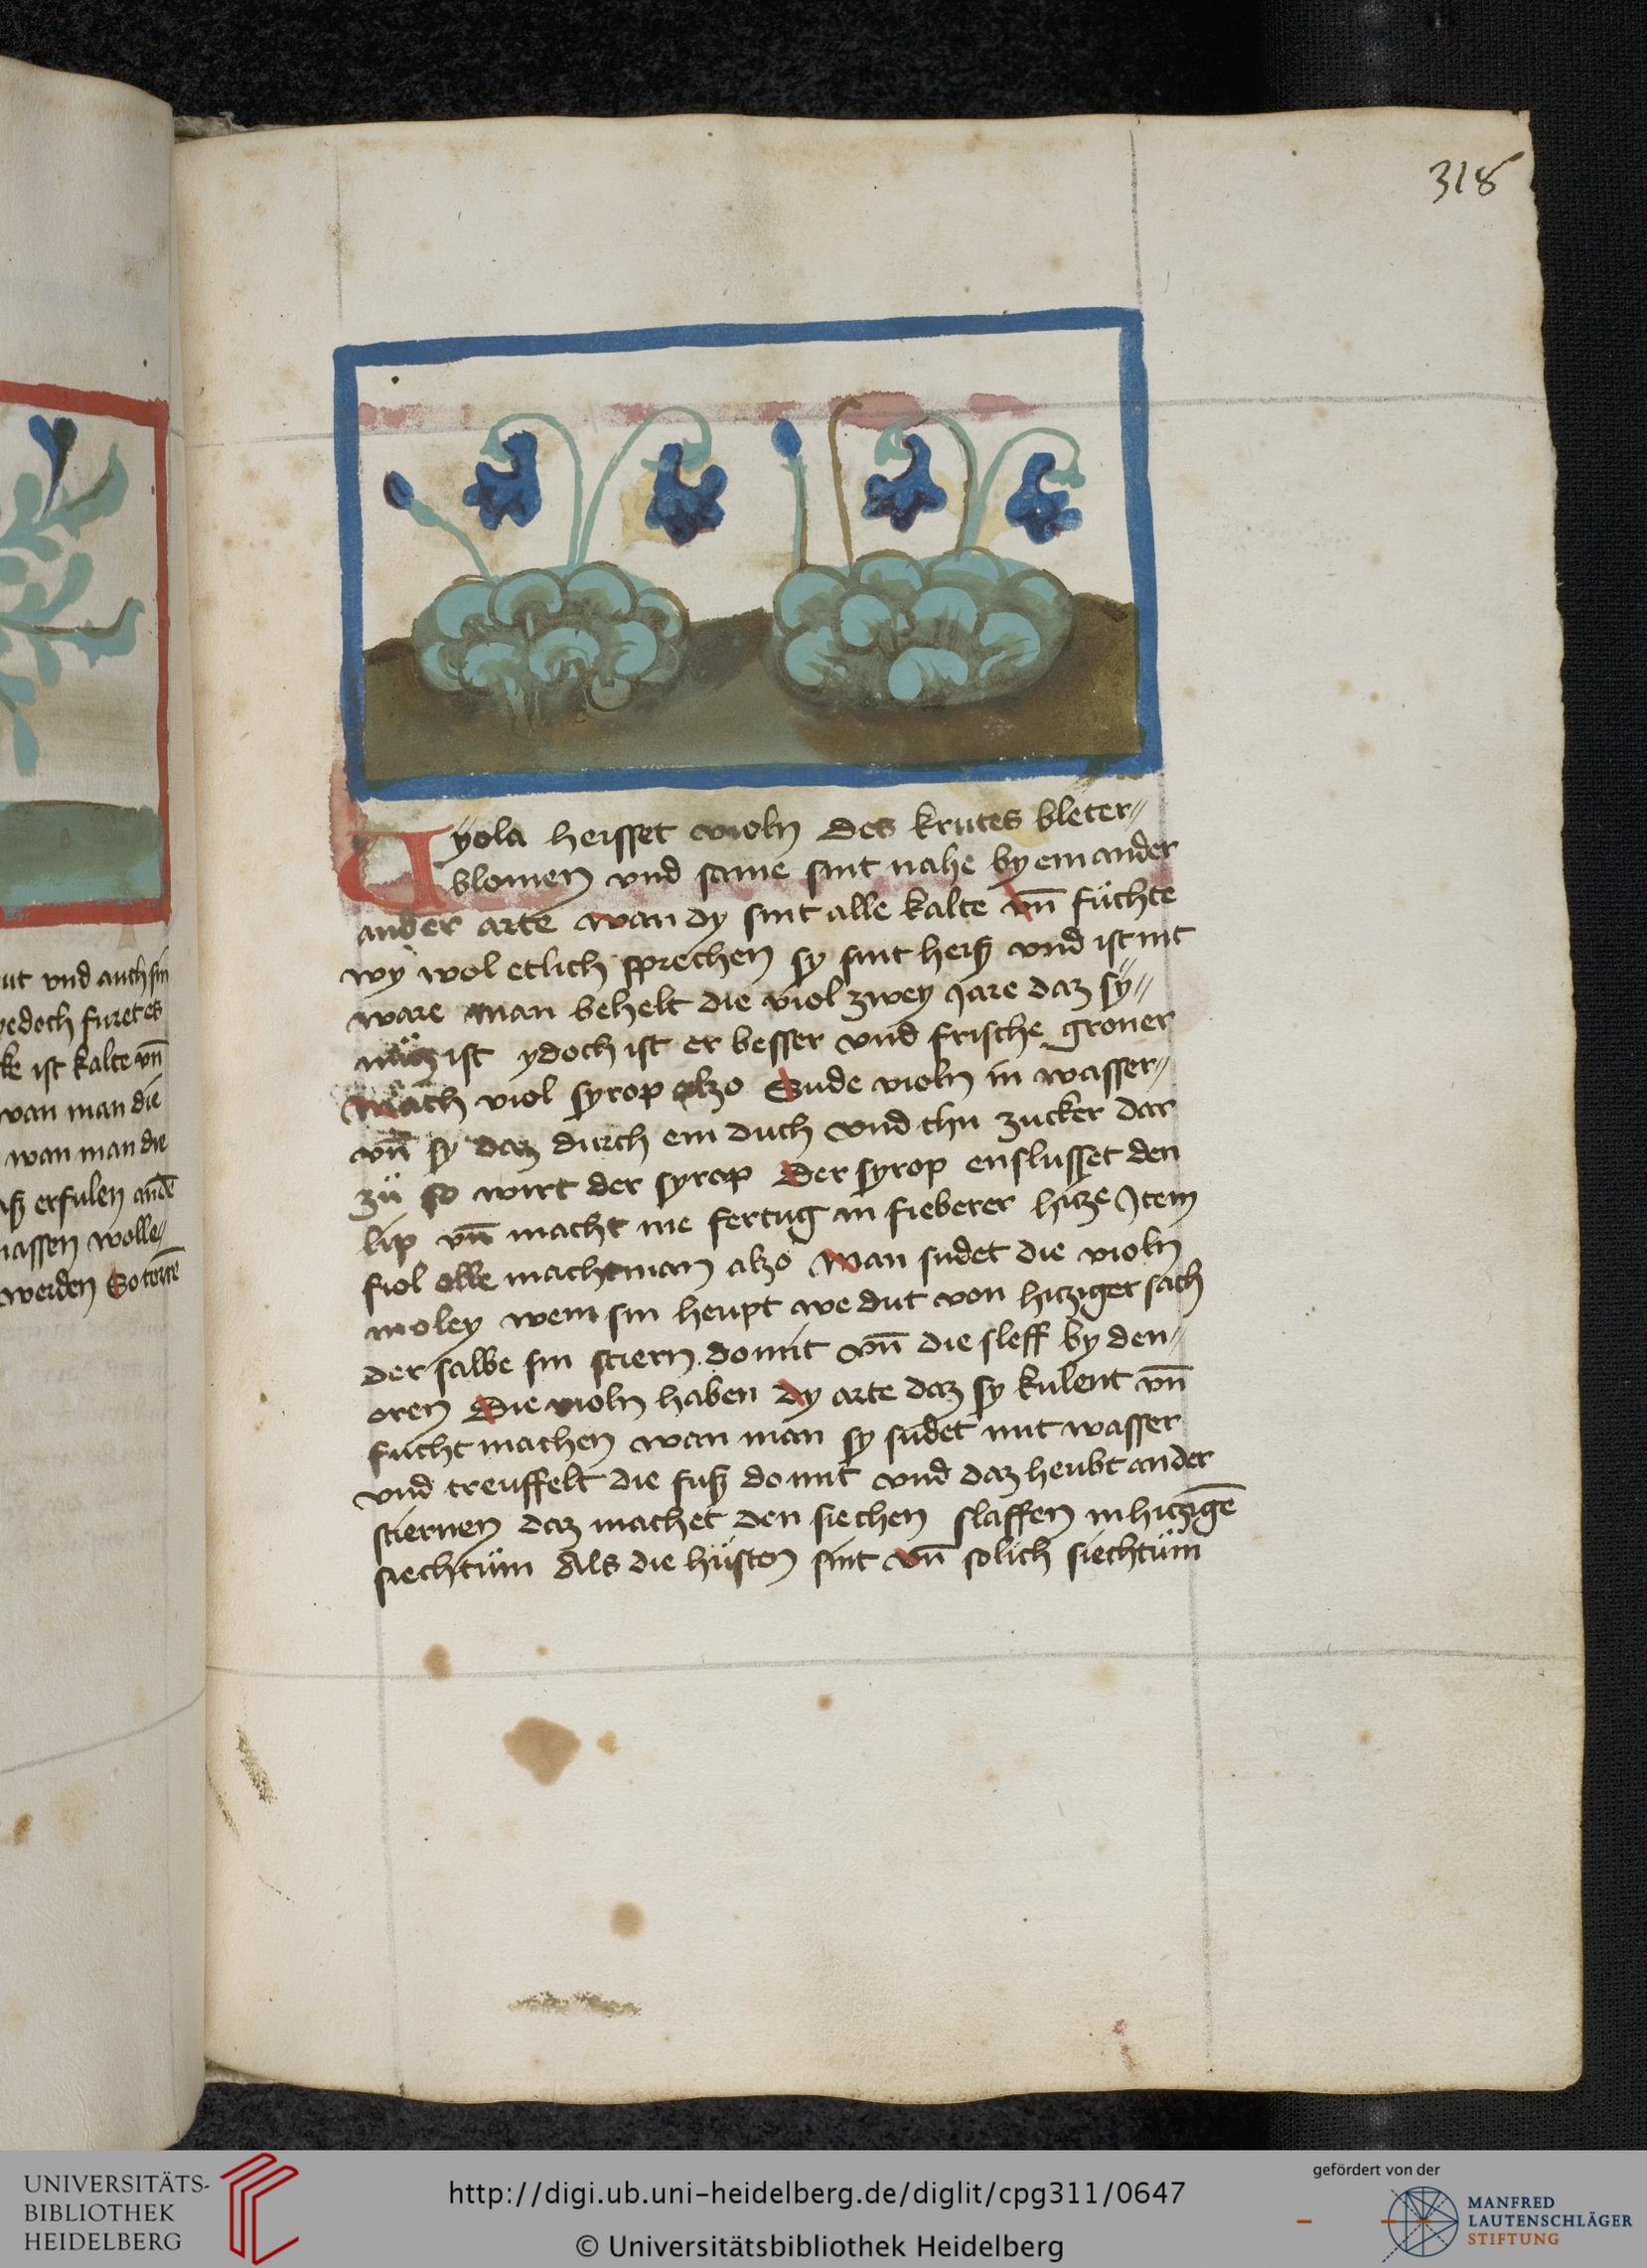 318
Vÿola heisset violn des krutes bleter
blomen vnd same sint nahe by einander
ander arte wan dy sint alle kalte vn̄ füchte
wy wol etlich sprechen sy sint heiß vnd ist nit
ware man behelt die viol zwey Jare daz sÿ
nücz ist ydoch ist er besser vnd frische groner
Mach viol syrop alzo Sude violn in wasser
vn̄ sy daz durch ein duch vnd thu zucker dar
zü so wirt der syrop Der syrop enslusset den
lip vn̄ macht me fertug in fieberer hicze Jtem
fiol olle macht man alzo Man sudet die violn
in oley wem sin heupt we dut von hicziger sach
der salbe sin stiern domit vn̄ die sleff by den
oren Die violn haben dy arte daz sy kulent vn̄
fucht machen wan man sy sudet mit wasser
vnd treuffelt die fuß domit vnd daz heubt an der
stiernen daz machet den siechen slaffen in hiczigē
siechtüm Als die hüsten sint vn̄ solich siechtüm
ut vnd auch sin
yedoch furet es
ist kalte vn̄
wan man die
wan man die
erfulen andē
lassen wolle
werden So
UNIVERSITÄTS-
BIBLIOTHEK
HEIDELBERG
http://digi.ub.uni-heidelberg.de/diglit/cpg311/0647
© Universitätsbibliothek Heidelberg
gefördert von der
MANFRED
LAUTENSCHLÄGER
STIFTUNG